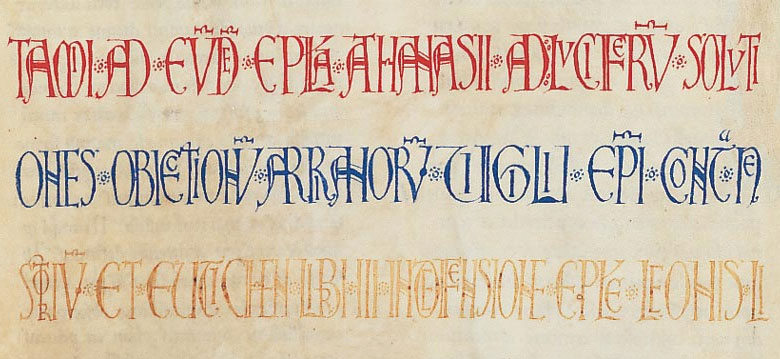 TAMII · AD · EV̄DĒ · EPLA · ATHANASII · AD · LVCIFERV̄ · SOLVTI
ONES · OBIECTIONV̄ · ARRIANORV̄ · VIGILII · EP̄I · CONTᵃ NE
STORIV̄ · ET · EUTICHEN · LIBRI · III · IN DEFENSIONE · EPLE · LEONIS · LI